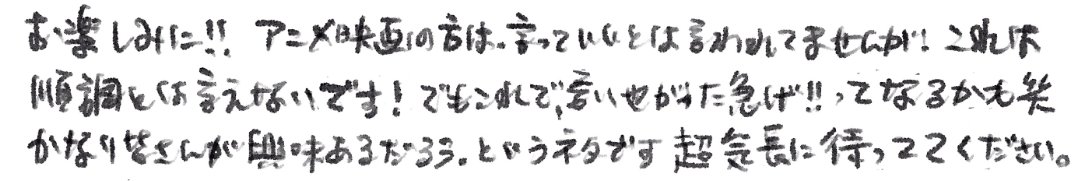 お楽しみに!! アニメ映画の方は、言っていいとは言われてませんが! これは
順調とは言えないです! でもこれで、言いやがった急げ!! ってなるかも笑
かなり皆さんが興味あるだろう。というネタです 超気長に待っててください。